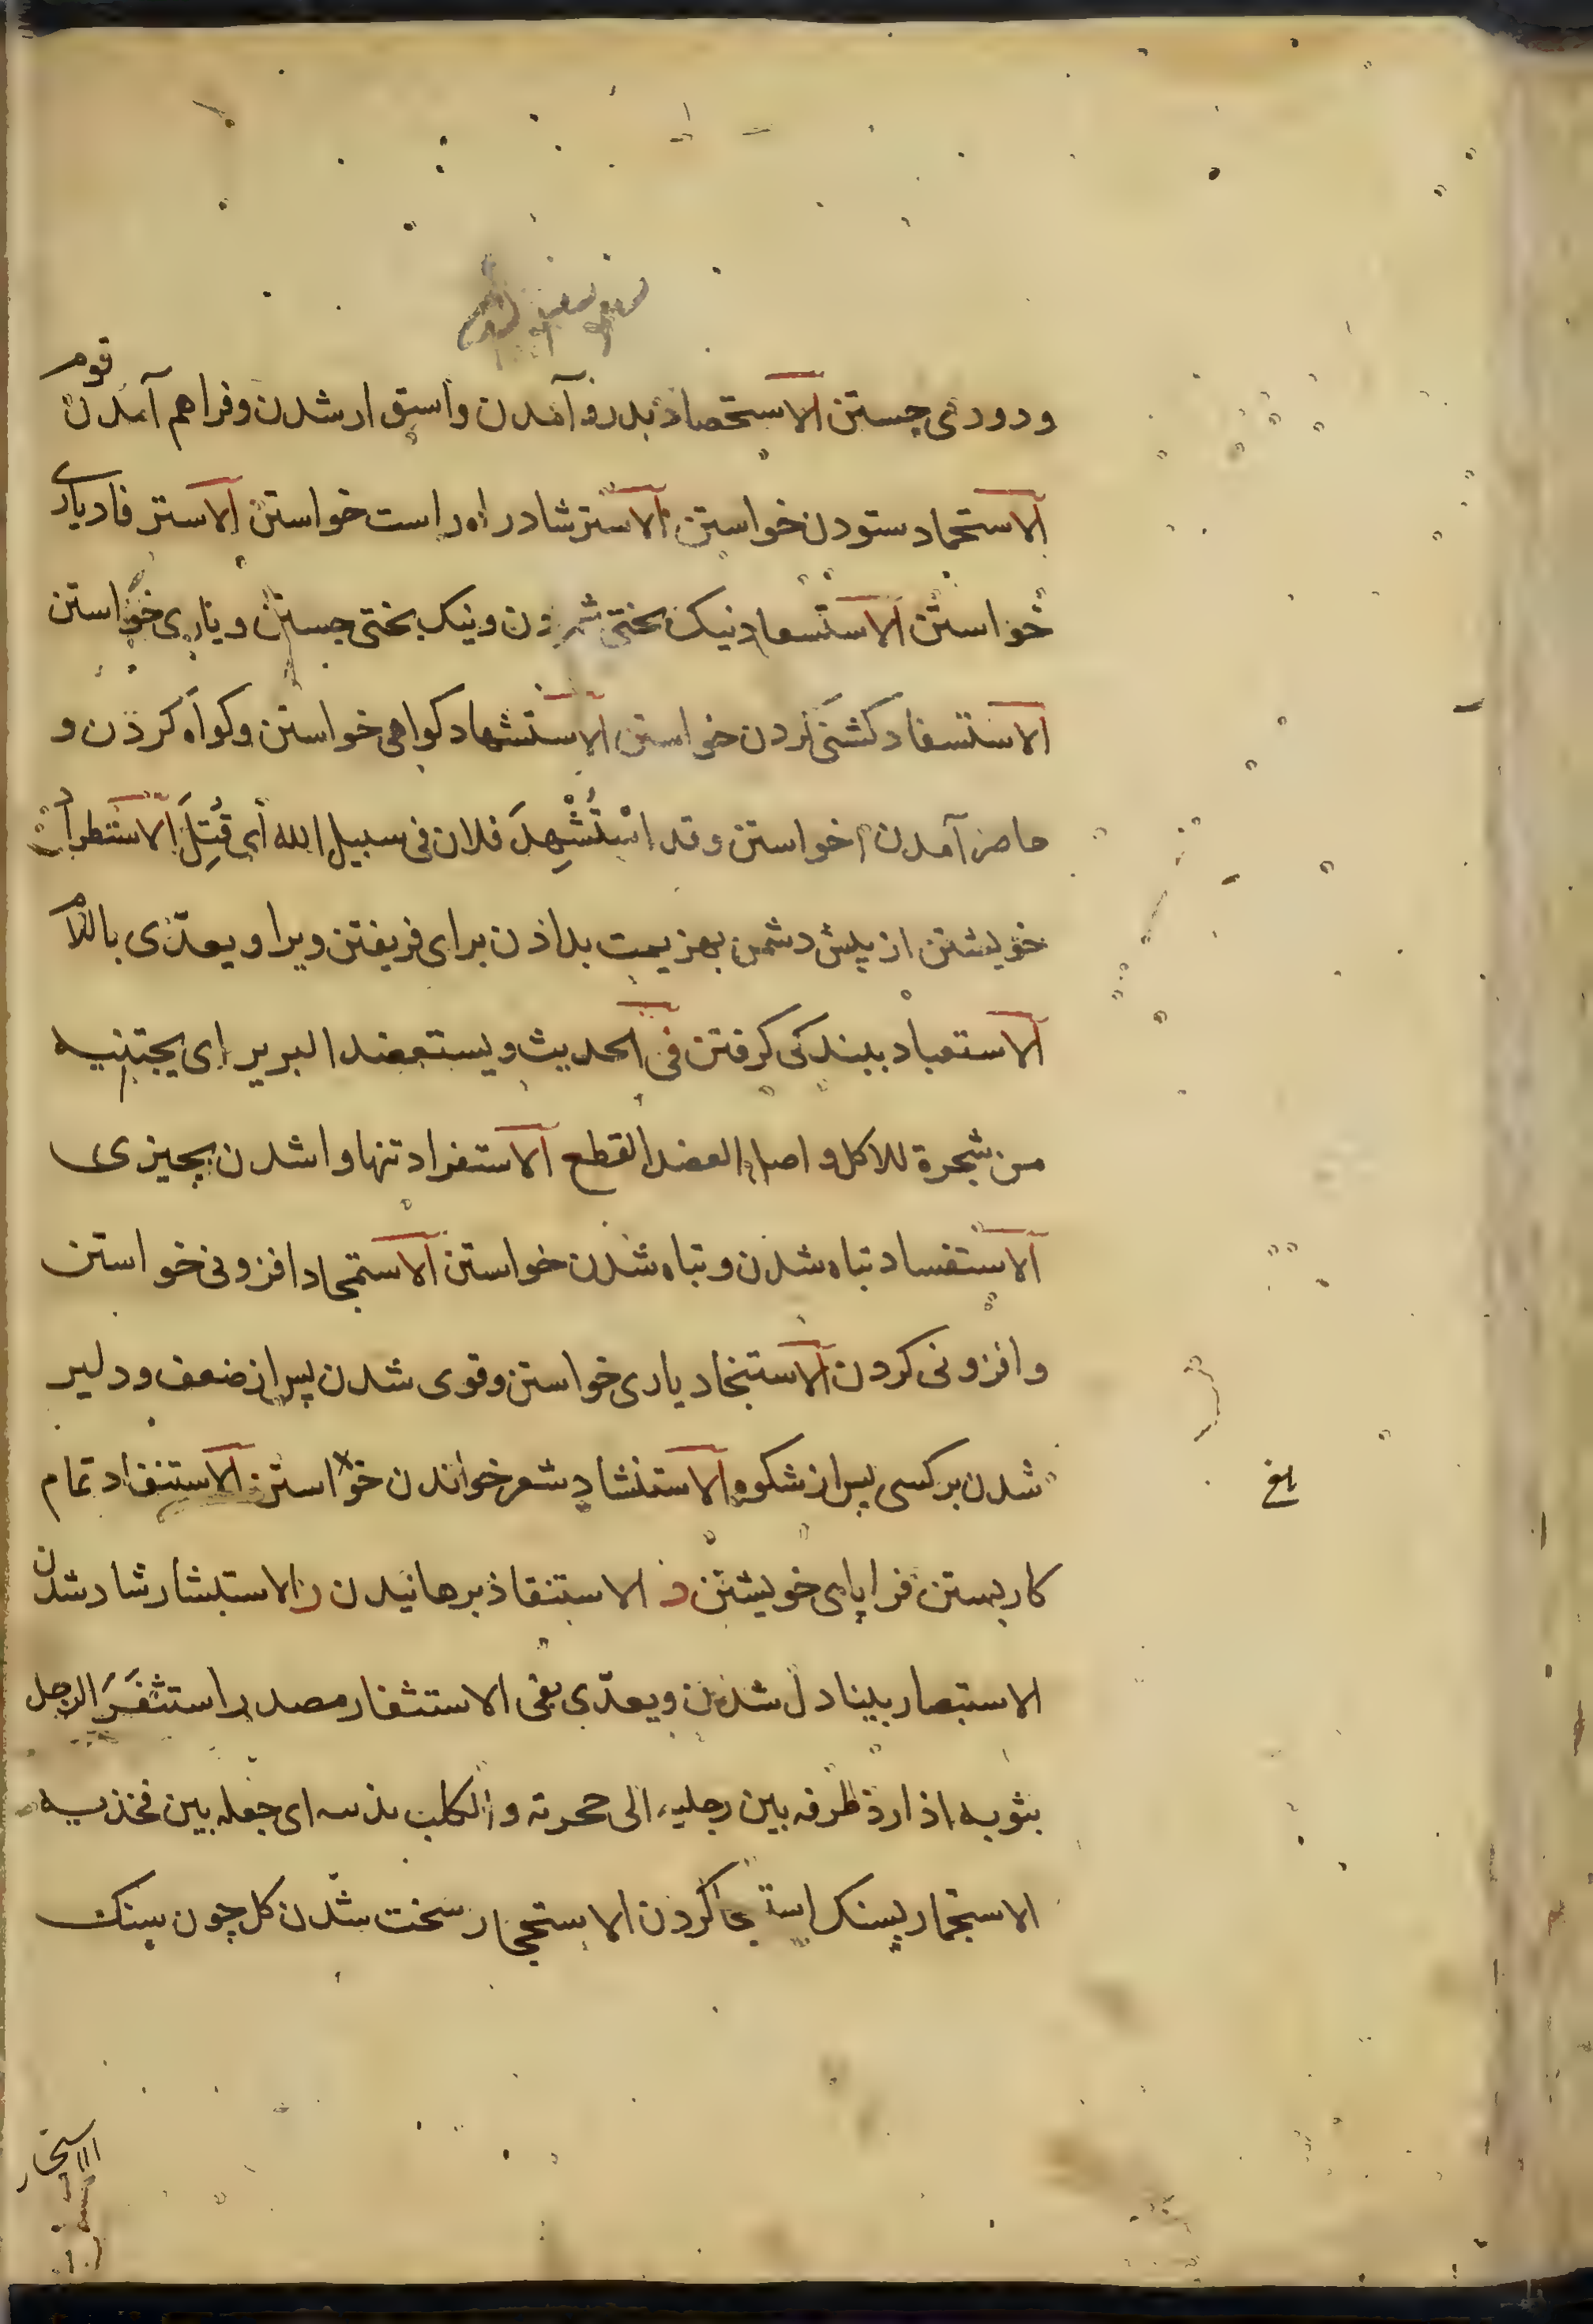 ودوری جستن الاستحصاد بدرو آمدن واستوار شدن وفراهم آمدن قوم
الاستحماد ستودن خواستن الاسترشاد راه راست خواستن الاسترفاد یاری
خواستن الاستسعاد نیک بختی شمردن ونیک بختی جستن ویاری خواستن
الاستسفاد کشنی کردن خواستن الاستشهاد کواهی خواستن وکواه کردن و
حاضر آمدن خواستن وقد استُشْهِدَ فلان فی سبیل الله أی قُتِلَ الاستطراد
خویشتن از پیش دشمن بهزیمت بداذن برای فریفتن ویرا ویعدّی باللام
الاستعباد ببندکی کرفتن فی الحدیث ویستعضد البریر ای یجتنیه
من شجرة للاکل واصل العضد القطع الاستفراد تنها واشدن بچیزی
الاستفساد تباه شدن وتباه شدن خواستن الاستمجاد افزونی خواستن
وافزونی کردن الاستنجاد یاری خواستن وقوی شدن پس از ضعف ودلیر
شدن برکسی پس از شکوه الاستنشاد شعر خواندن خواستن الاستنفاد تمام
کاربستن فرا پای خویشتن ذ الاستنقاذ برهانیدن ر الاستبشار شاد شدن
الاستبصار بینا دل شدن ویعدّی بفی الاستثفار مصدر استثفَرَ الرجل
بثوبه اذا ردّ طرفه بین رجلیه الی حجزته والکلب بذنبه ای جعله بین فخذیه
الاستجمار بسنک استنجا کردن الاستحجار سخت شدن کل چون سنک
بلغ